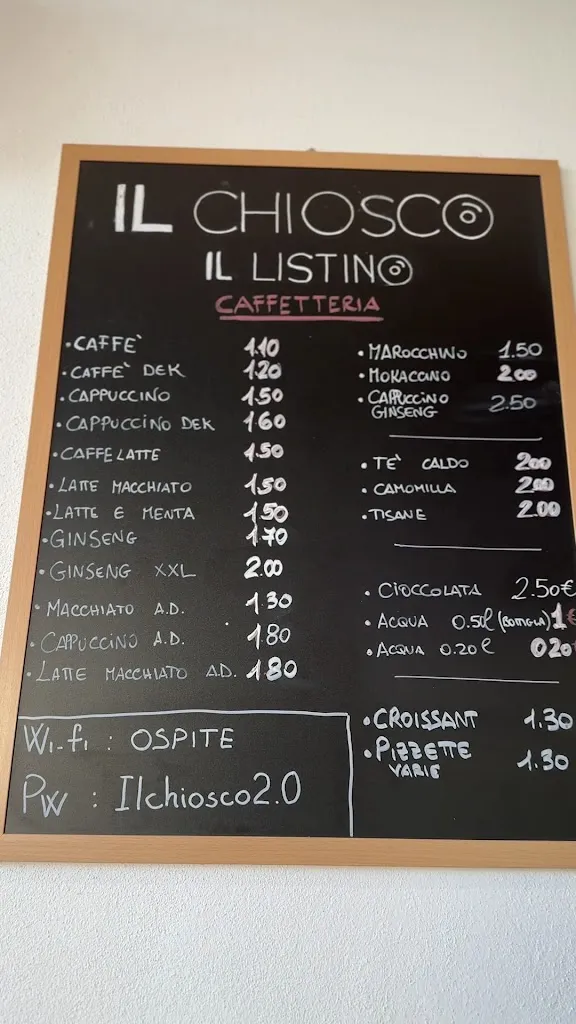 IL CHIOSCO
IL LISTINO
CAFFETTERIA
• CAFFE' 1.10
• CAFFE' DEK 1.20
• CAPPUCCINO 1.50
• CAPPUCCINO DEK 1.60
• CAFFELATTE 1.50
• LATTE MACCHIATO 1.50
• LATTE E MENTA 1.50
• GINSENG 1.70
• GINSENG XXL 2.00
• MACCHIATO A.D. 1.30
• CAPPUCCINO A.D. 1.80
• LATTE MACCHIATO A.D. 1.80
Wi-fi : OSPITE
PW : Ilchiosco2.0
• MAROCCHINO 1.50
• MOKACCINO 2.00
• CAPPUCCINO 2.50
GINSENG
• TE' CALDO 2.00
• CAMOMILLA 2.00
• TISANE 2.00
• CIOCCOLATA 2.50€
• ACQUA 0.50l (BOTTIGLIA) 1€
• ACQUA 0.20l 0.20
• CROISSANT 1.30
• PIZZETTE 1.30
VARIE